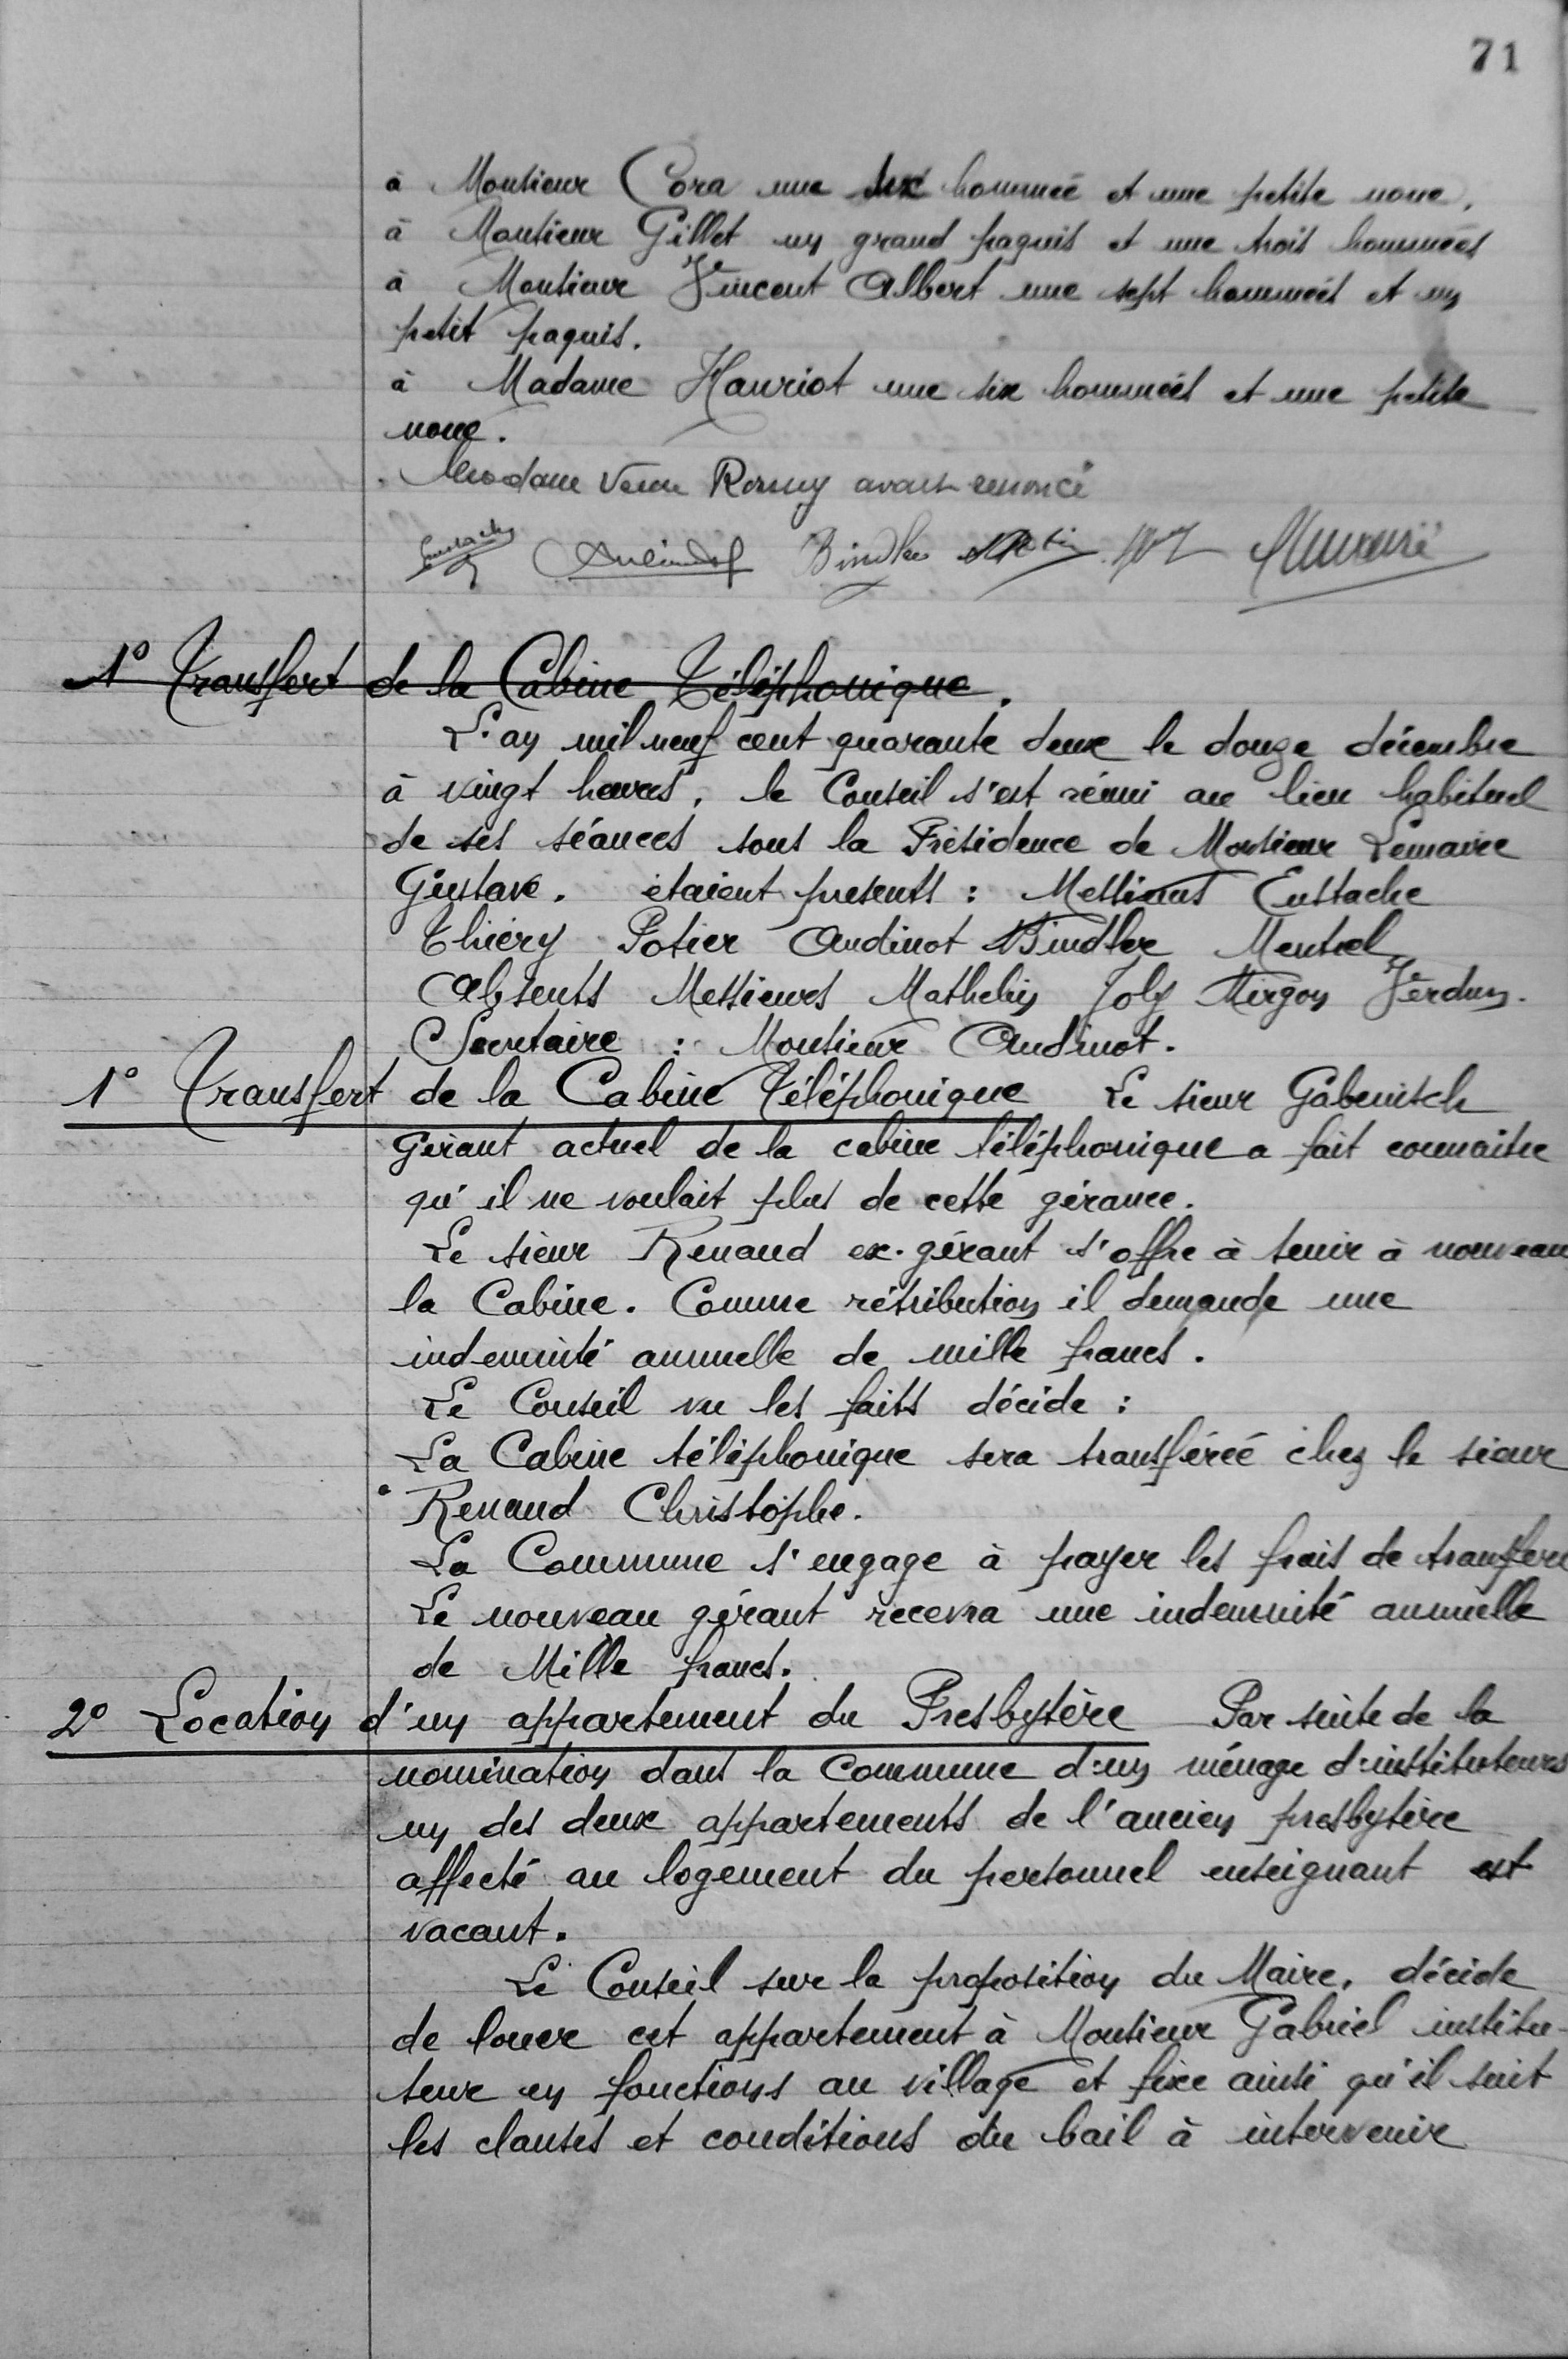 71
à Monsieur Cora une six hommée et une petite noue.
à Monsieur Gillet un grand paquis et une trois hommées
à Monsieur Vincent Albert une sept hommées et un
petit paquis.
à Madame Hanriot une six hommées et une petite
noue.
Madame Veuve Remy ayant renoncé
Eustache Audinot Bindler
1° Transfert de la Cabine Téléphonique.
L'an mil neuf cent quarante deux le douze décembre
à vingt heures, le Conseil s'est réuni au lieu habituel
de ses séances sous la Présidence de Monsieur Lemaire
Gustave. étaient présents : Messieurs Eustache
Thiéry Potier Audinot Bindler Mentrel
Absents Messieurs Mathelin Joly Mirgon Verdun.
Secrétaire : Monsieur Audinot.
1° Transfert de la Cabine Téléphonique Le sieur Gabenisch
Gérant actuel de la cabine téléphonique a fait connaitre
qu'il ne voulait plus de cette gérance.
Le sieur Renaud ex-gérant s'offre à tenir à nouveau
la Cabine. Comme rétribution il demande une
indemnité annuelle de mille francs.
Le Conseil vu les faits décide :
La Cabine téléphonique sera transférée chez le sieur
Renaud Christophe.
La Commune s'engage à payer les frais de transfert
Le nouveau gérant recevra une indemnité annuelle
de Mille francs.
2° Location d'un appartement du Presbytère Par suite de la
nomination dans la Commune d'un ménage d'instituteurs
un des deux appartements de l'ancien presbytère
affecté au logement du personnel enseignant est
vacant.
Le Conseil sur la proposition du Maire, décide
de louer cet appartement à Monsieur Gabriel institu-
teur en fonctions au village et fixe ainsi qu'il suit
les clauses et conditions du bail à intervenir